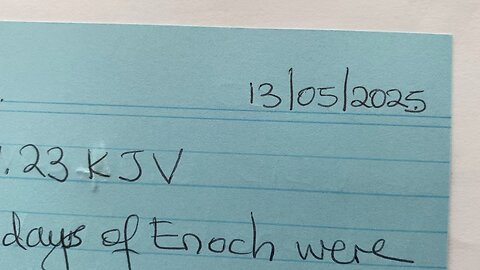 13/05/2025
.23 KJV
days of Enoch were